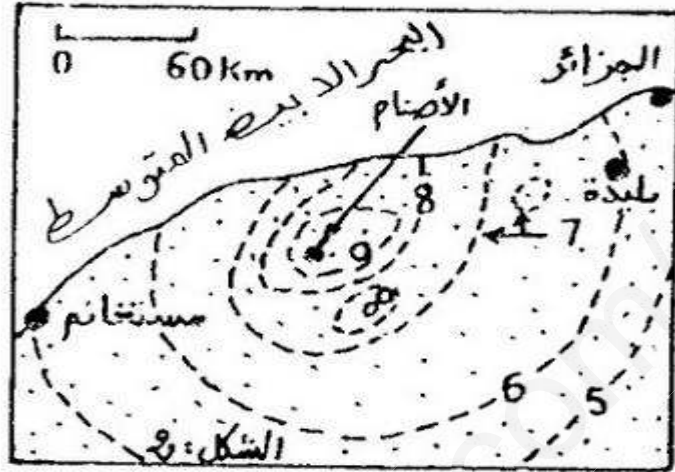 0 60 km
البحر الأبيض المتوسط
الجزائر
الأصنام
بليدة
8
7
9
8
مستغانم
6
5
الشكل: و